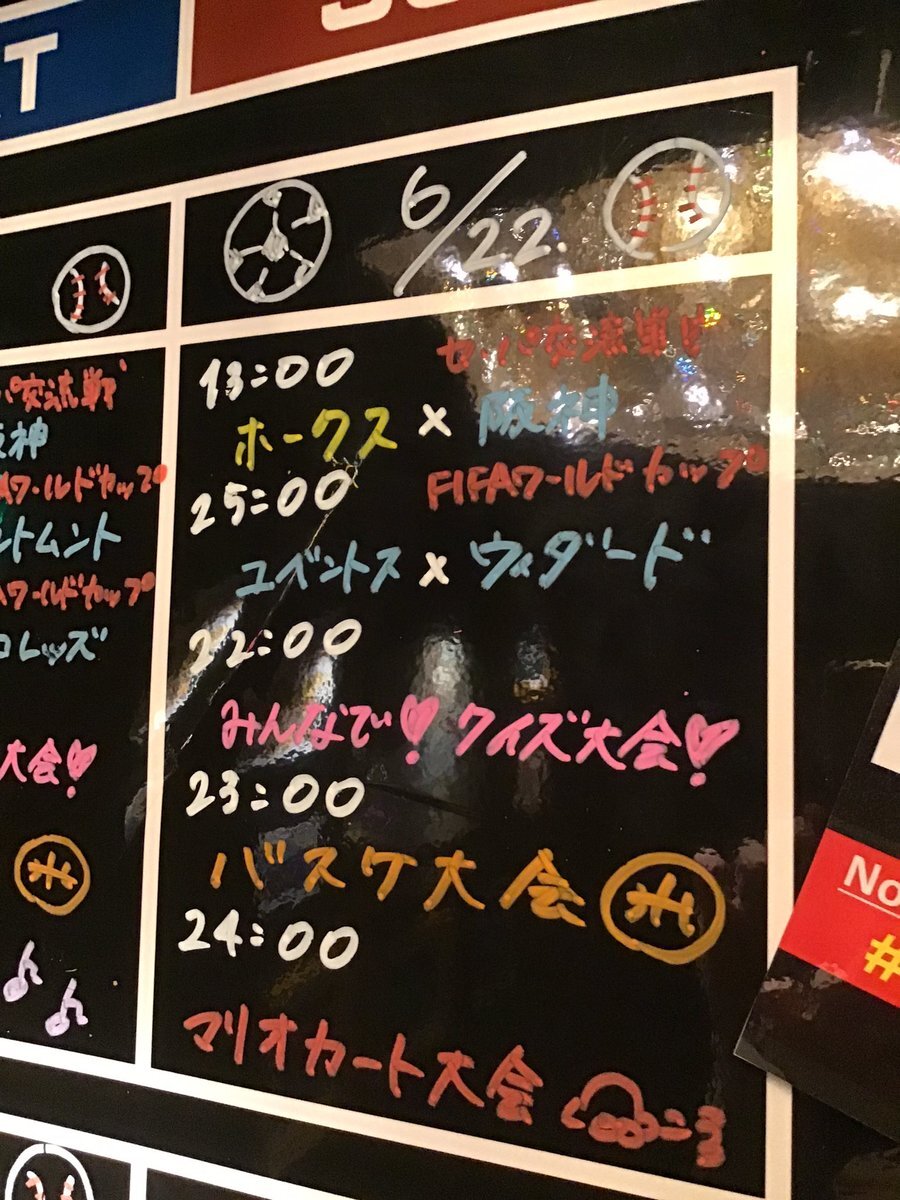 T
6/22
13:00 セ・パ交流戦!!
ホークス×阪神
25:00 FIFAワールドカップ
ユベントス×ウィダード
22:00
みんなで クイズ大会
23:00
バスケ大会
24:00
マリオカート大会
パ交流戦
阪神
Aワールドカップ
ントムント
Aワールドカップ
コレッズ
大会
No
#